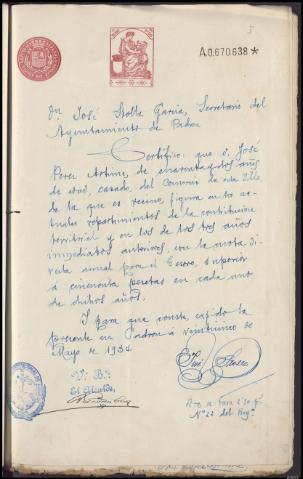 A0.670.638*
Dn. José Stolle García, Secretario del
Ayuntamiento de Padrón
Certifico: que D. José
Perez de cuarenta y dos años
de edad, casado, del Comercio de esta Villa
de la que es vecino, figura en los ac-
tuales repartimientos de la contribución
territorial y en los de los tres años
inmediatos anteriores, con la cuota di-
recta anual para el Tesoro, superior
á cincuenta pesetas en cada uno
de dichos años.
Y para que conste, expido la
presente en Padrón á de
Mayo de 1934.
V.º B.º
El Alcalde,
José
Nº 22 del Regº